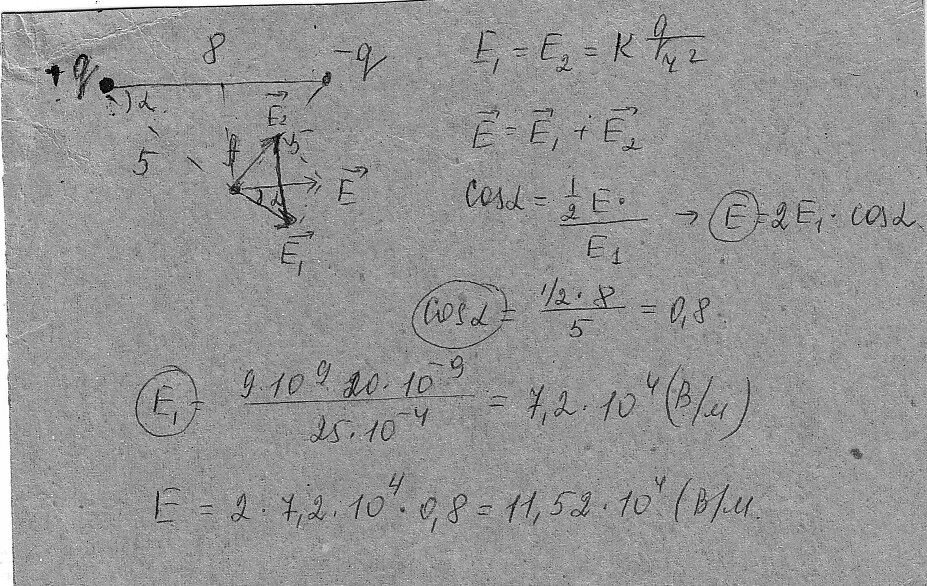 8
+q -q
α
E⃗₂
5 5
α E⃗
E⃗₁
E₁ = E₂ = K q/r²
E⃗ = E⃗₁ + E⃗₂
Cosα = ½ E · / E₁ → E = 2E₁ · cosα
Cosα = 1/2 · 8 / 5 = 0,8
E₁ = 9·10⁹ · 20·10⁻⁹ / 25·10⁻⁴ = 7,2 · 10⁴ (В/м)
E = 2 · 7,2 · 10⁴ · 0,8 = 11,52 · 10⁴ (В/м